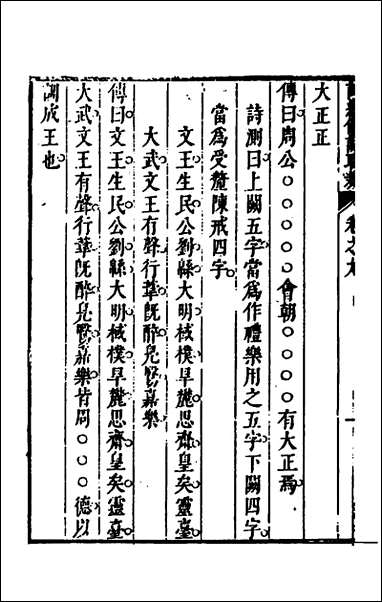 卷之九
大正正
傳曰周公○○○○○會朝○○○○有大正焉
詩測曰上闕五字當爲作禮樂用之五字下闕四字
當爲受釐陳戒四字
文王生民公劉緜大明棫樸旱麓思齋皇矣靈臺
大武文王有聲行葦旣醉鳧鷖嘉樂
傳曰文王生民公劉緜大明棫樸旱麓思齋皇矣靈臺
大武文王有聲行葦旣醉鳧鷖嘉樂皆周○○○德以
訓成王也